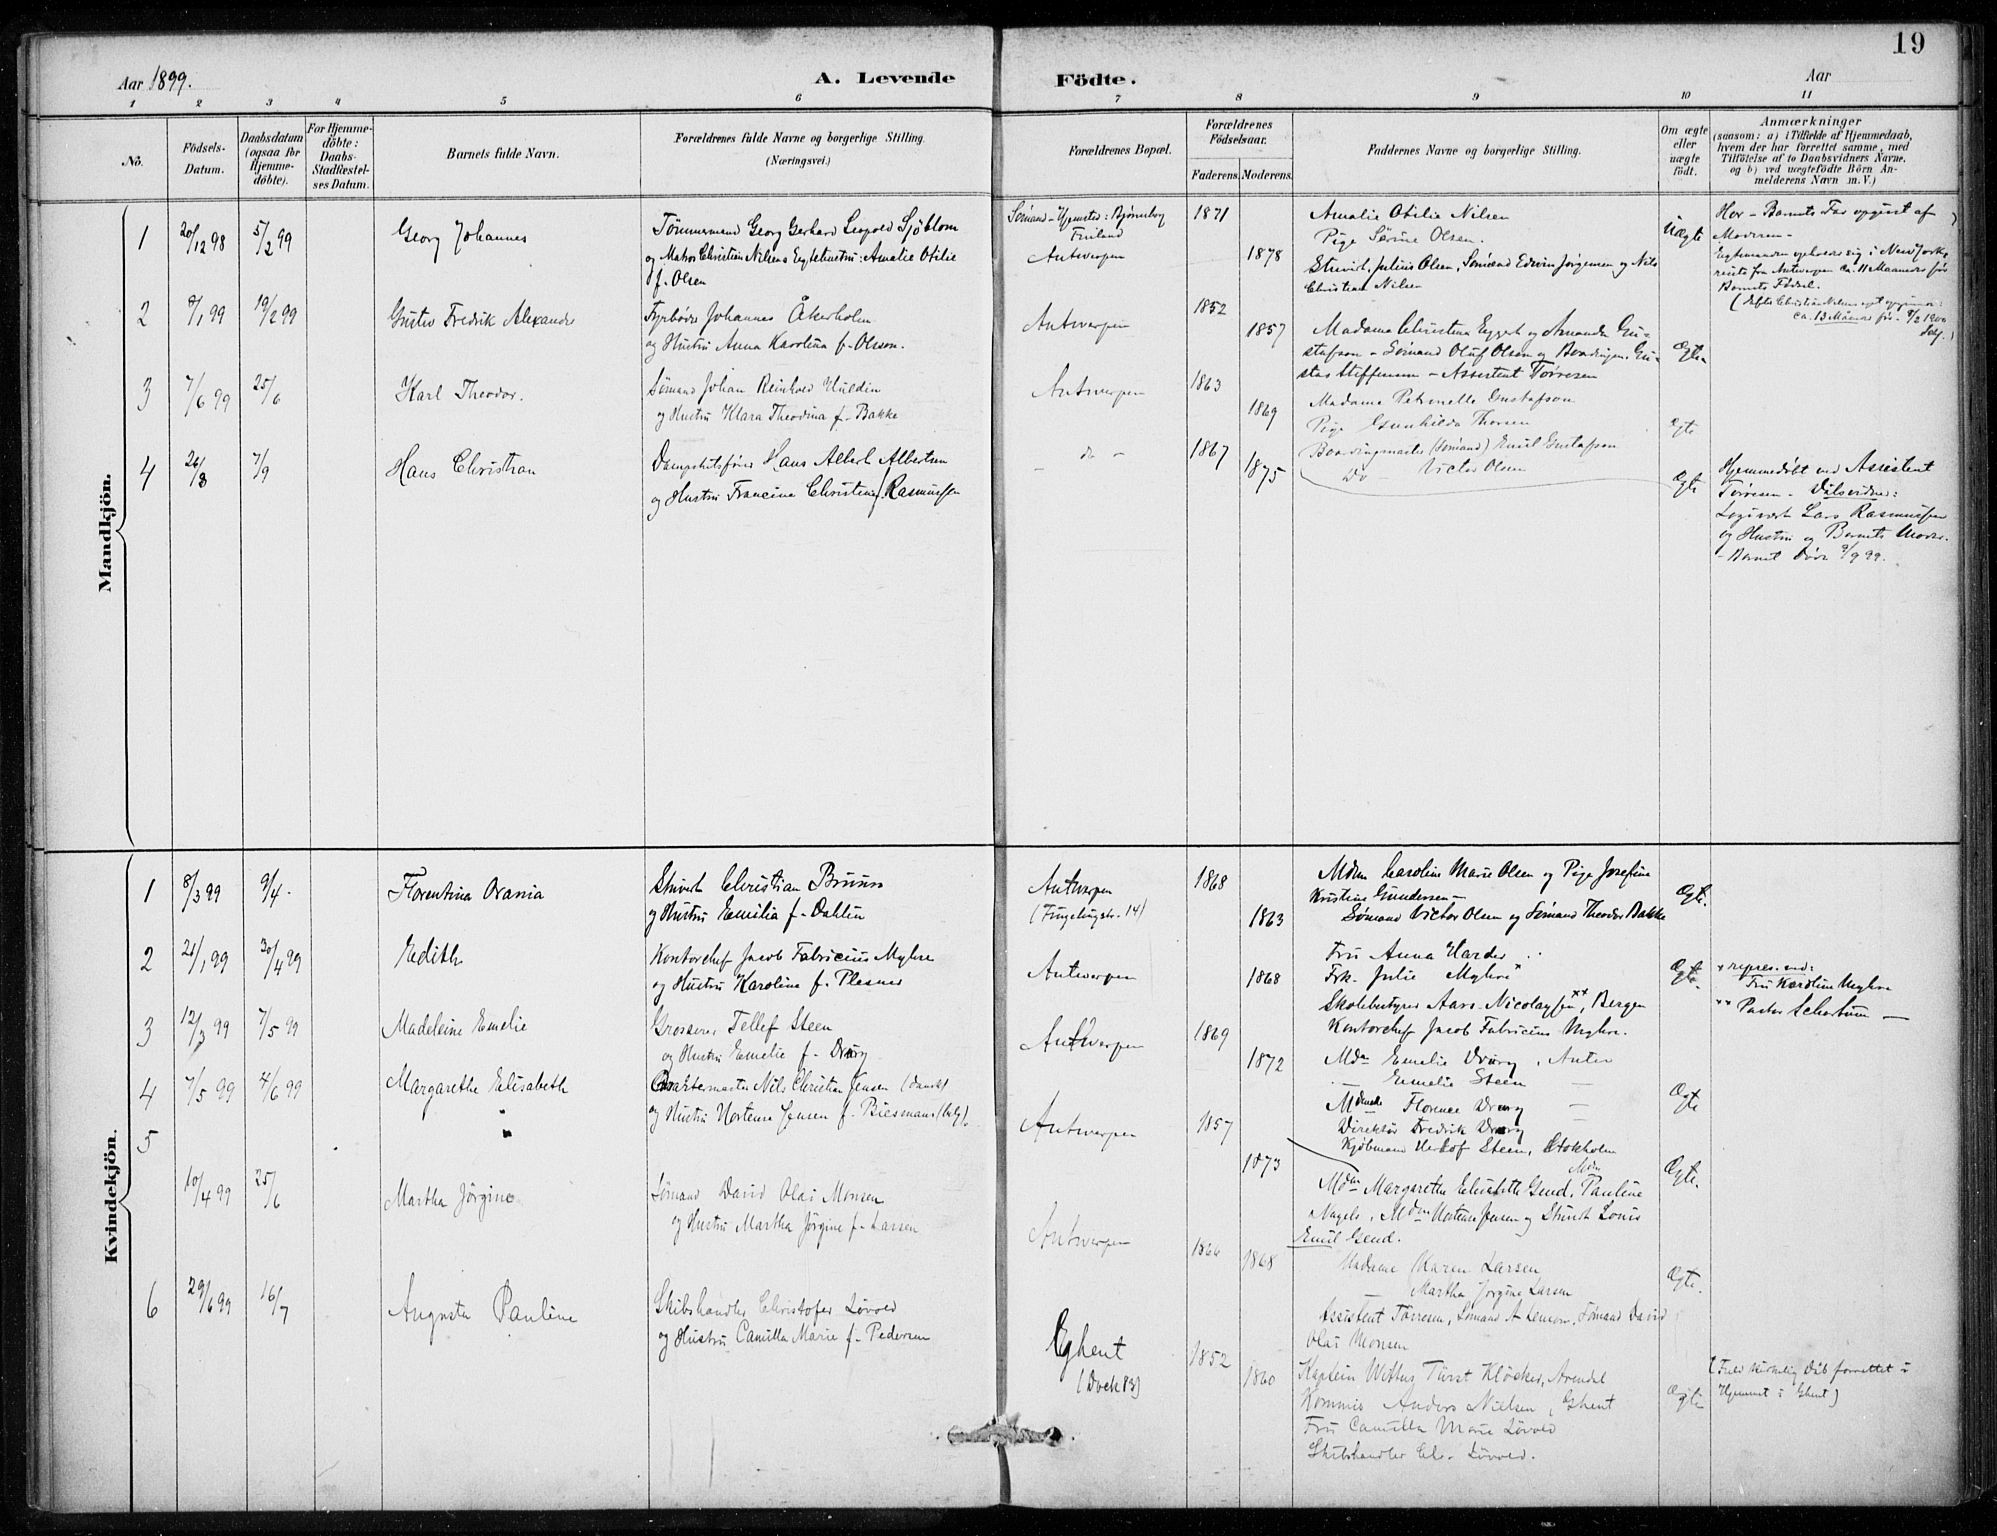 19
Aar 1899.
A. Levende
Födte.
Aar
1 2 3 4 5 6 7 8 9 10 11
No.
Födsels-Datum.
Daabsdatum (ogsaa for Hjemme-döbte).
For Hjemme-döbte: Daabs-Stadfæstel-ses Datum.
Barnets fulde Navn.
Forældrenes fulde Navne og borgerlige Stilling.
(Næringsvei.)
Forældrenes Bopæl.
Forældrenes Födselsaar.
Faderens. Moderens.
Faddernes Navne og borgerlige Stilling.
Om ægte eller uægte födt.
Anmærkninger
(saasom: a) i Tilfælde af Hjemmedaab,
hvem der har forrettet samme, med
Tilföielse af to Daabsvidners Navne,
og b) ved uægtefödte Börn An-
melderens Navn m. V.)
Mandkjön.
1 20/12 98 5/2 99 Georg Johannes
Tömmermand Georg Gerhard Leopold Sjöblom
og Matros Christian Nilsens Egtehustru: Amalie Otilie
f. Olsen
Sömand - Hjemsted: Björneborg
Finland
Antwerpen
1871
1878
Amalie Otilie Nilsen
Pige Serine Olsen.
Stuvert Julius Olsen, Sömand Edvin Jörgensen og Nils
Christian Nilsen
Uægte
Hor - Barnets Far opgivet af
Moderen -
Egtemanden opholder sig i New York,
reiste fra Antwerpen ca. 11 Maaneder før
Barnets Födsel.
ca. 13 Måneder før. 8/2 1900
2 8/1 99 19/2 99 Gustav Fredrik Alexander
Fyrböder Johannes Åkerholm
og Hustru Anna Karolina f. Olsson.
Antwerpen
1852
1857
Madame Christina Egget og Amanda Gu-
stafson - Sömand Oluf Olsen og Boardingm. Gu-
stav Steffensen - Assistent Törresen
Ægte
3 7/6 99 25/6 Karl Theodor.
Sömand Johan Reinhold Huldin
og Hustru Klara Theodina f. Bakke
Antwerpen
1863
1869
Madame Petronelle Gustafson
Pige Gunhilda Thorsen
Boardingmaster (Sömand) Emil Gustafson
Do Victor Olsen
Ægte
4 26/8 7/9 Hans Christian
Dampskibsförer Hans Albert Albertsen
og Hustru Francine Christine f. Rasmussen
- do -
1867
1875
Ægte
Hjemmedöbt ved Assistent
Törresen - Dåbsvidner:
Logivert Lars Rasmussen
og Hustru og Barnets Moder.
- Barnet döde 9/9 99.
Kvindekjön.
1 8/3 99 9/4. Florentina Orania
Stuert Christian Bruun
og Hustru Emilia f. Dahlin
Antwerpen
1868
1863
Mdm Caroline Marie Olsen og Pige Josefine
Kristine Gundersen -
Sömand Victor Olsen og Sömand Theodor Bakke
Ægte.
2 21/1 99 30/4 99 Edith
Kontorchef Jacob Fabricius Myhre
og Hustru Karoline f. Plesner
Antwerpen
1868
Fru Anna Harder
Frk. Julie Myhre*
Skolebestyrer Aars-Nicolaysen**, Bergen
Kontorchef Jacob Fabricius Myhre.
Ægte.
* repres. ved:
Fru Karoline Myhre
** Pastor Schartum -
3 12/3 99 7/5 99 Madeleine Emelie
Grosserer Tellef Steen
og Hustru Emelie f. Drory
Antwerpen
1869
1872
Mdm Emelie Drory, Antw
- Emelie Steen -
Mdmselle Florence Drory -
Direktör Fredrik Drory
Kjöbmand Steen, Stokholm
Ægte
4 7/5 99 4/6 99 Margarethe Elisabeth
Nils Christian Jensen (dansk)
og Hustru Hortense Jensen f. Biesmans (belg).
Antwerpen
1857
1873
Mdm Margarethe Elisabeth Gend, Mdm Pauline
Nagels, Mdm Hortense Jensen og Stuert Louis
Emil Gend.
Ægte.
5 10/4 99 25/6 Martha Jörgine
Sömand David Olai Monsen
og Hustru Martha Jörgine f. Larsen
Antwerpen
1866
1868
Madame Maren Larsen
Martha Jörgine Larsen
Assistent Törresen, Sömand A. Larsen, Sömand David
Olai Monsen
Ægte.
6 29/6 99 16/7 Augusta Pauline
Skibshandler Christofer Lövold
og Hustru Camilla Marie f. Pedersen
Ghent
(Dock 83)
1852
1860
Kaptein Klöcker, Arendal
Kommis Anders Nielsen, Ghent
Fru Camilla Marie Lövold
Skibshandler Chr. Lövold.
Ægte
(Fuld kirkelig Dåb forrettet i
Hjemmet i Ghent)